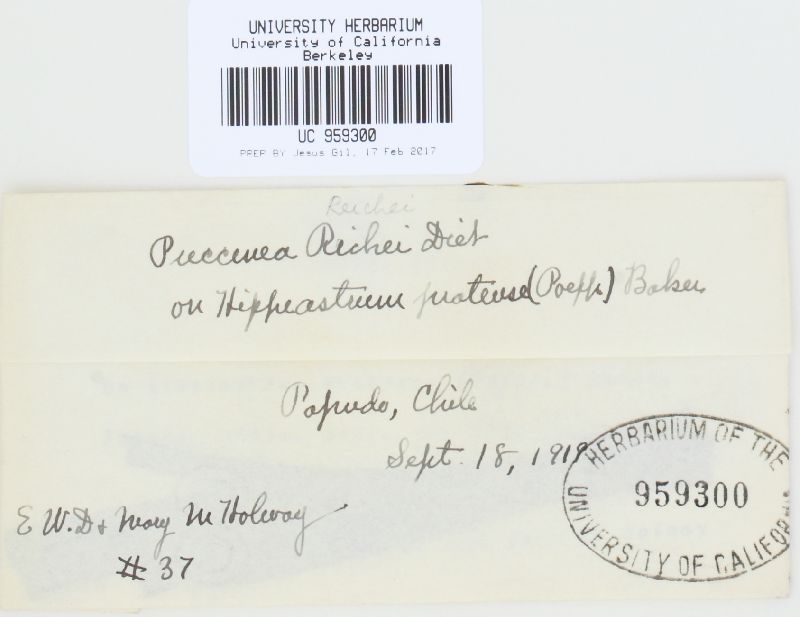 UNIVERSITY HERBARIUM
University of California
Berkeley
UC 959300
PREP BY Jesus Gil, 17 Feb 2017
Reichei
Puccinea Richei Diet
on Hippeastrum pratense (Poepp) Baker
Papudo, Chile
Sept. 18, 1919
E W. D & Mary M Holway
# 37
HERBARIUM OF THE
UNIVERSITY OF CALIFOR
959300